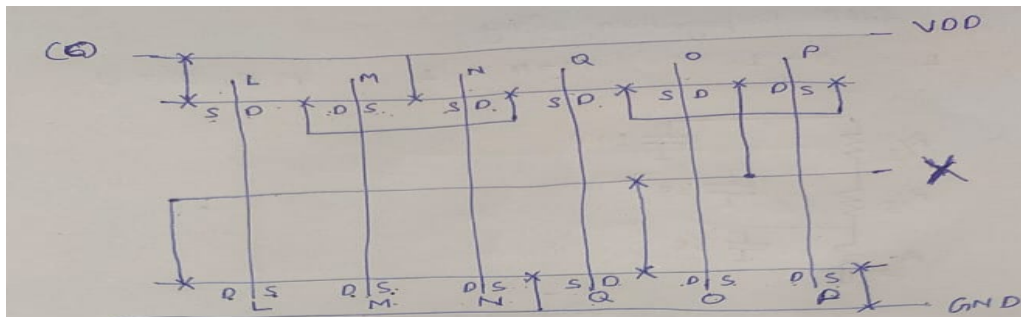 VDD
L M N Q O P
S D D S. S D. S D. S D D S
X
D S D S. D S S D. D S. D S
L M. N Q O P
GND